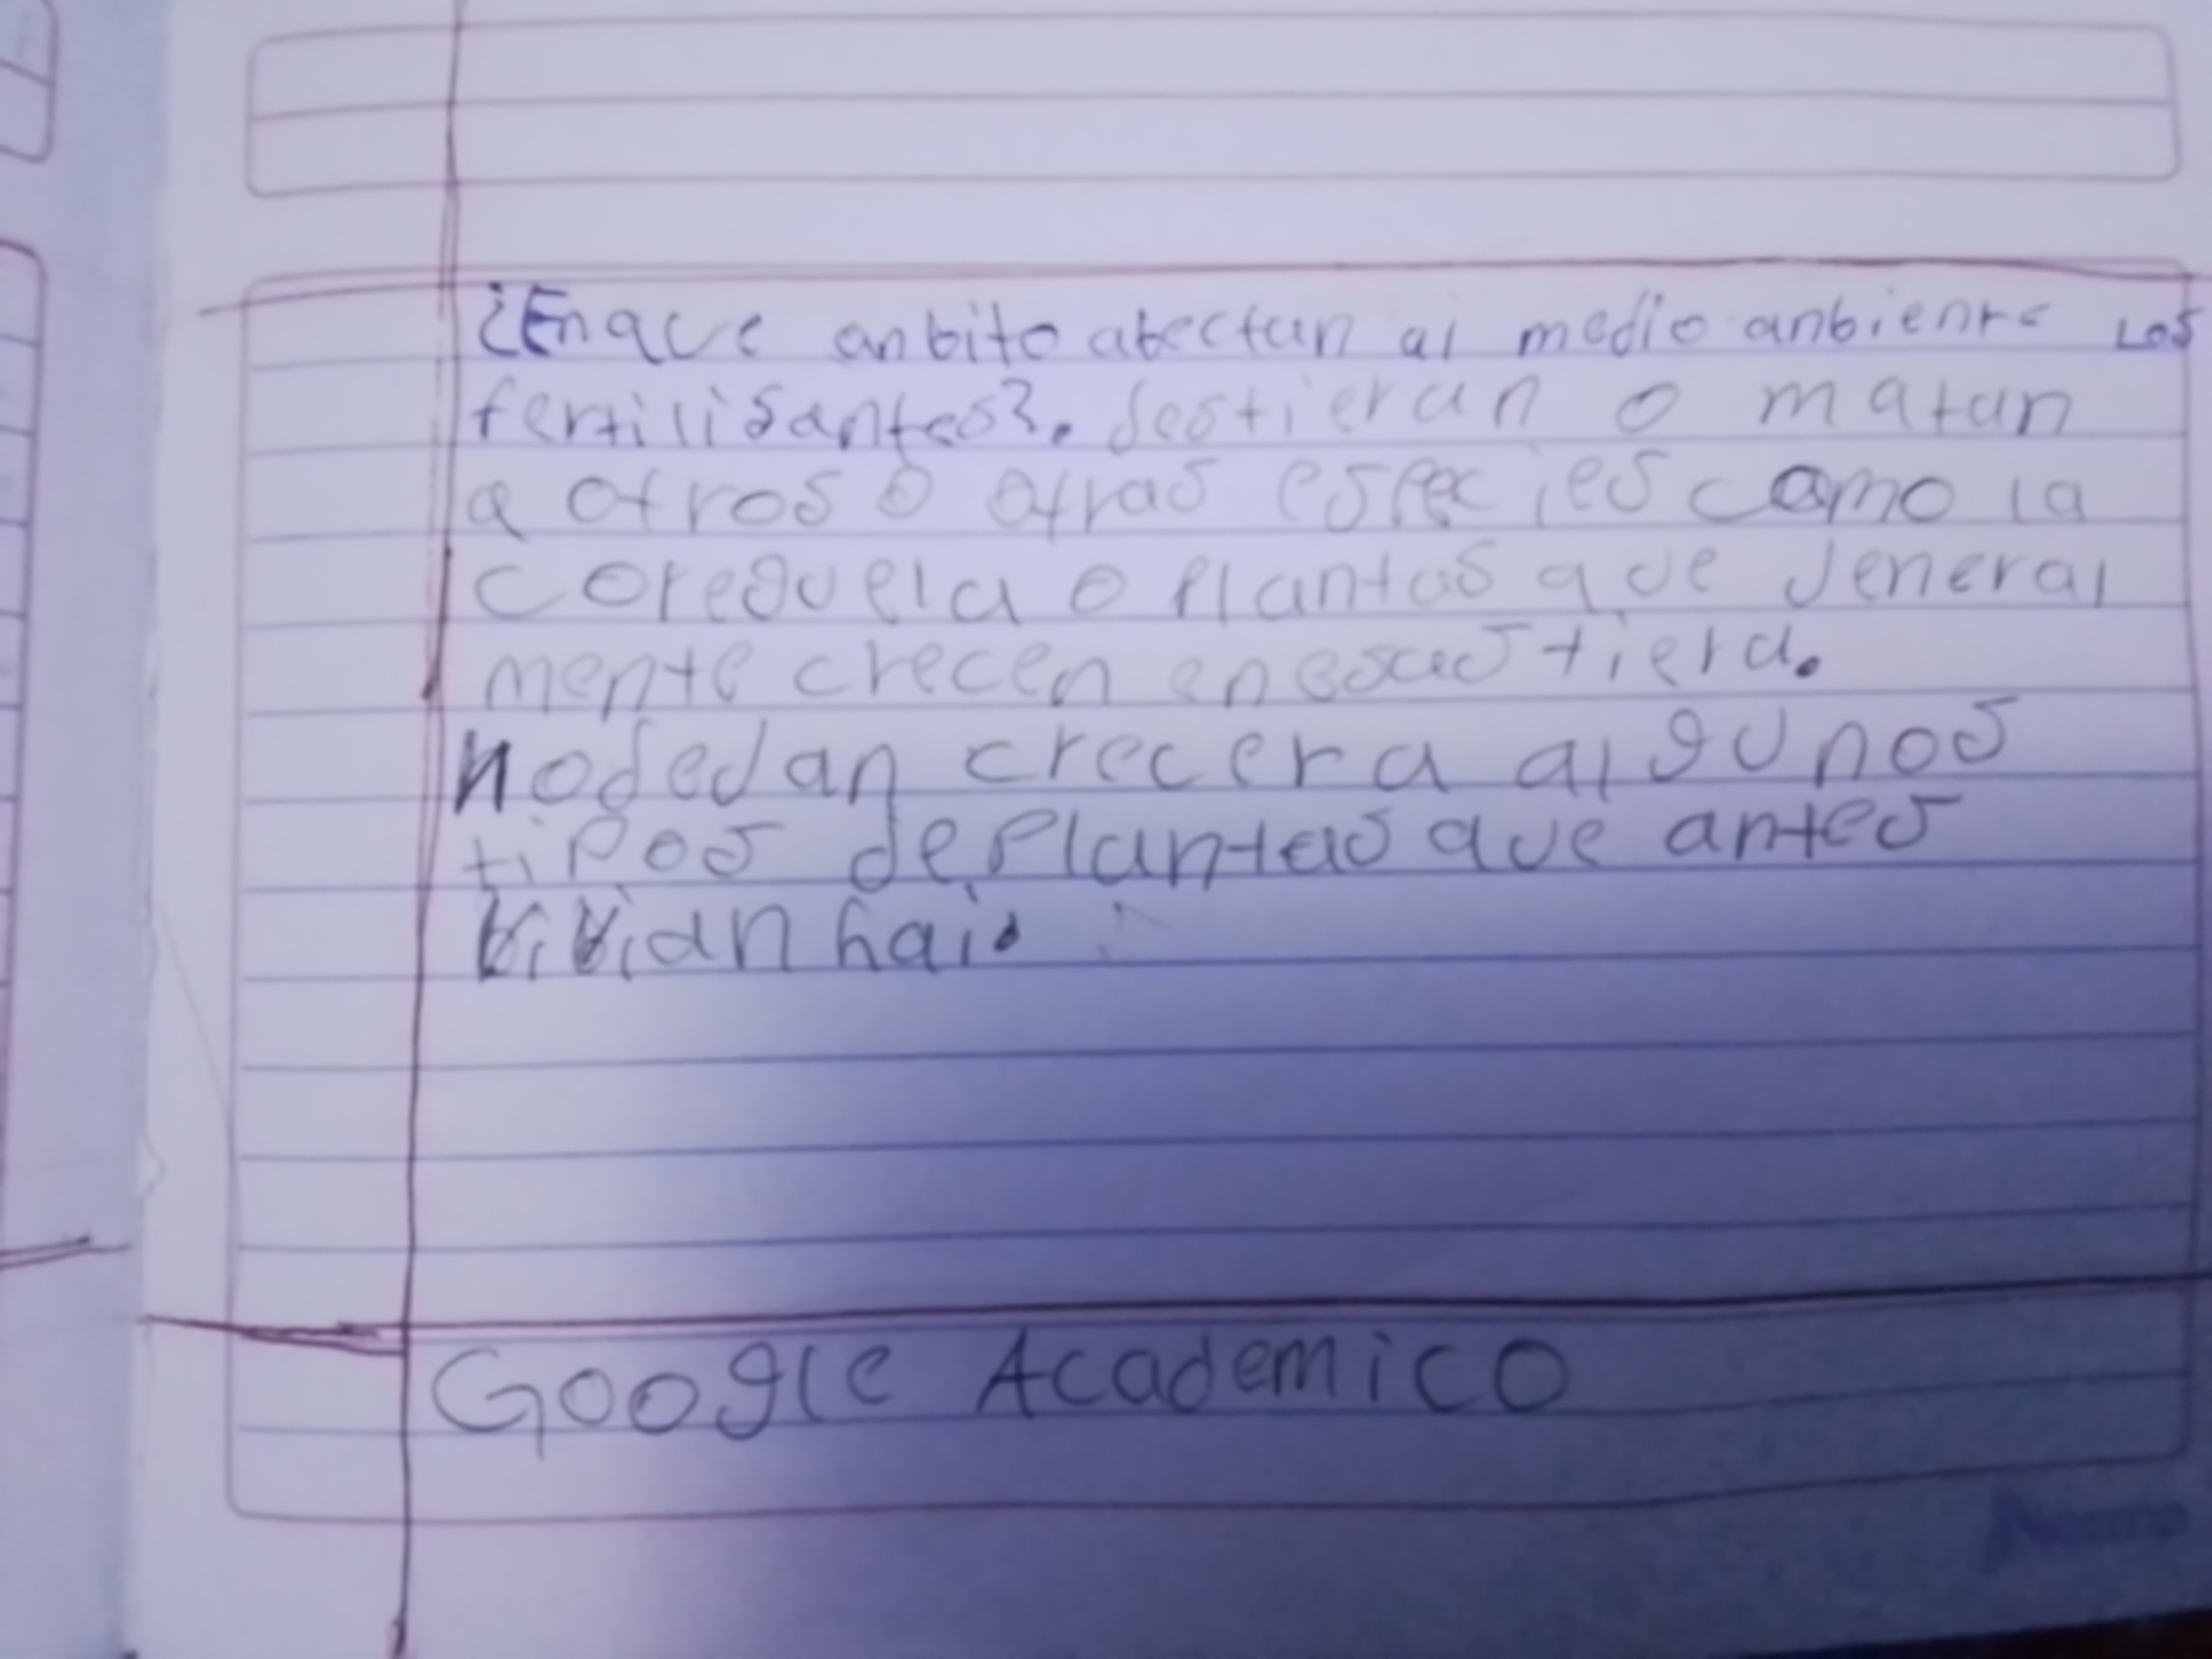 ¿En que anbito afectan al medio anbiente Los
fertilisantes?. destieran o matan
a otros o otras especies como la
coreguela o plantas que jeneral
mente crecen en esas tiera.
no dedan crecer a algunos
tipos de plantas que antes
bibian hai.
Google Academico
Norma